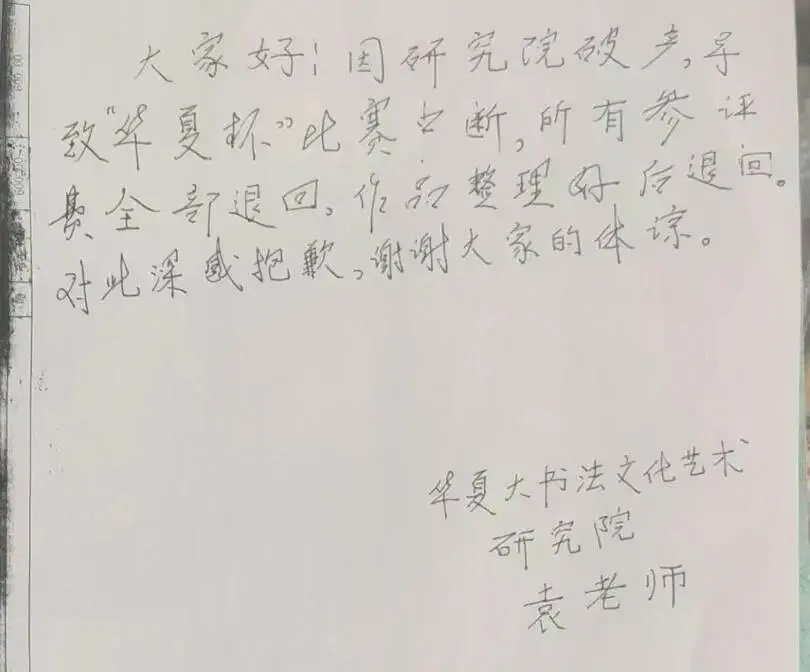 大家好！因研究院破产，导
致“华夏杯”比赛中断，所有参评
费全部退回，作品整理好后退回。
对此深感抱歉，谢谢大家的体谅。
华夏大书法文化艺术
研究院
袁老师